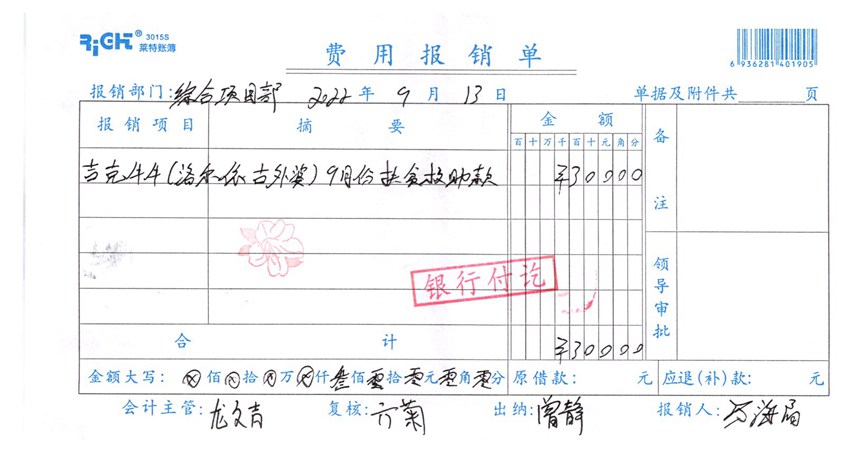 RiCHT® 3015S
莱特账簿
费用报销单
6 936281 401905
报销部门:综合项目部 2022年9月13日 单据及附件共 页
报销项目 摘要 金额 备注
百十万千百十元角分
吉克牛牛(洛尔依古外婆)9月份扶贫救助款 ¥30000
银行付讫
领导审批
合计 ¥30000
金额大写: ⊗佰⊗拾⊗万⊗仟叁佰零拾零元零角零分 原借款: 元 应退(补)款: 元
会计主管:龙文吉 复核:方菊 出纳:曾静 报销人:万海局